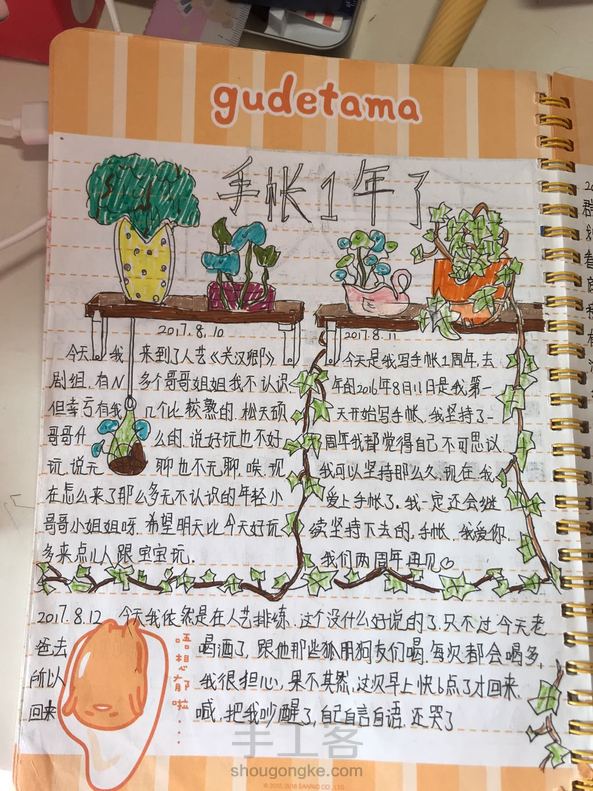 gudetama
手帐1年了
2017.8.10
今天我来到了人艺《关汉卿》
剧组，有N多个哥哥姐姐我不认识
但幸亏有我几个比较熟的，松天硕
哥哥什么的，说好玩也不好
玩，说无聊也不无聊，唉，现
在怎么来了那么多无不认识的年轻小
哥哥小姐姐呀，希望明天比今天好玩
多来点儿人跟宝宝玩.
2017.8.11
今天是我写手帐1周年，去
年的2016年8月11日是我第一
天开始写手帐，我坚持了一
周年我都觉得自己不可思议
我可以坚持那么久，现在，我
爱上手帐了，我一定还会继
续坚持下去的，手帐，我爱你，
我们两周年再见♡
2017.8.12 今天我依然是在人艺排练，这个没什么好说的了，只不过今天老
爸去喝酒了，跟他那些狐朋狗友们喝，每次都会喝多，
所以我很担心，果不其然，这次早上快6点了才回来，
回来喊，把我吵醒了，自己自言自语，还哭了
唔想郁啦....
手工客
shougongke.com